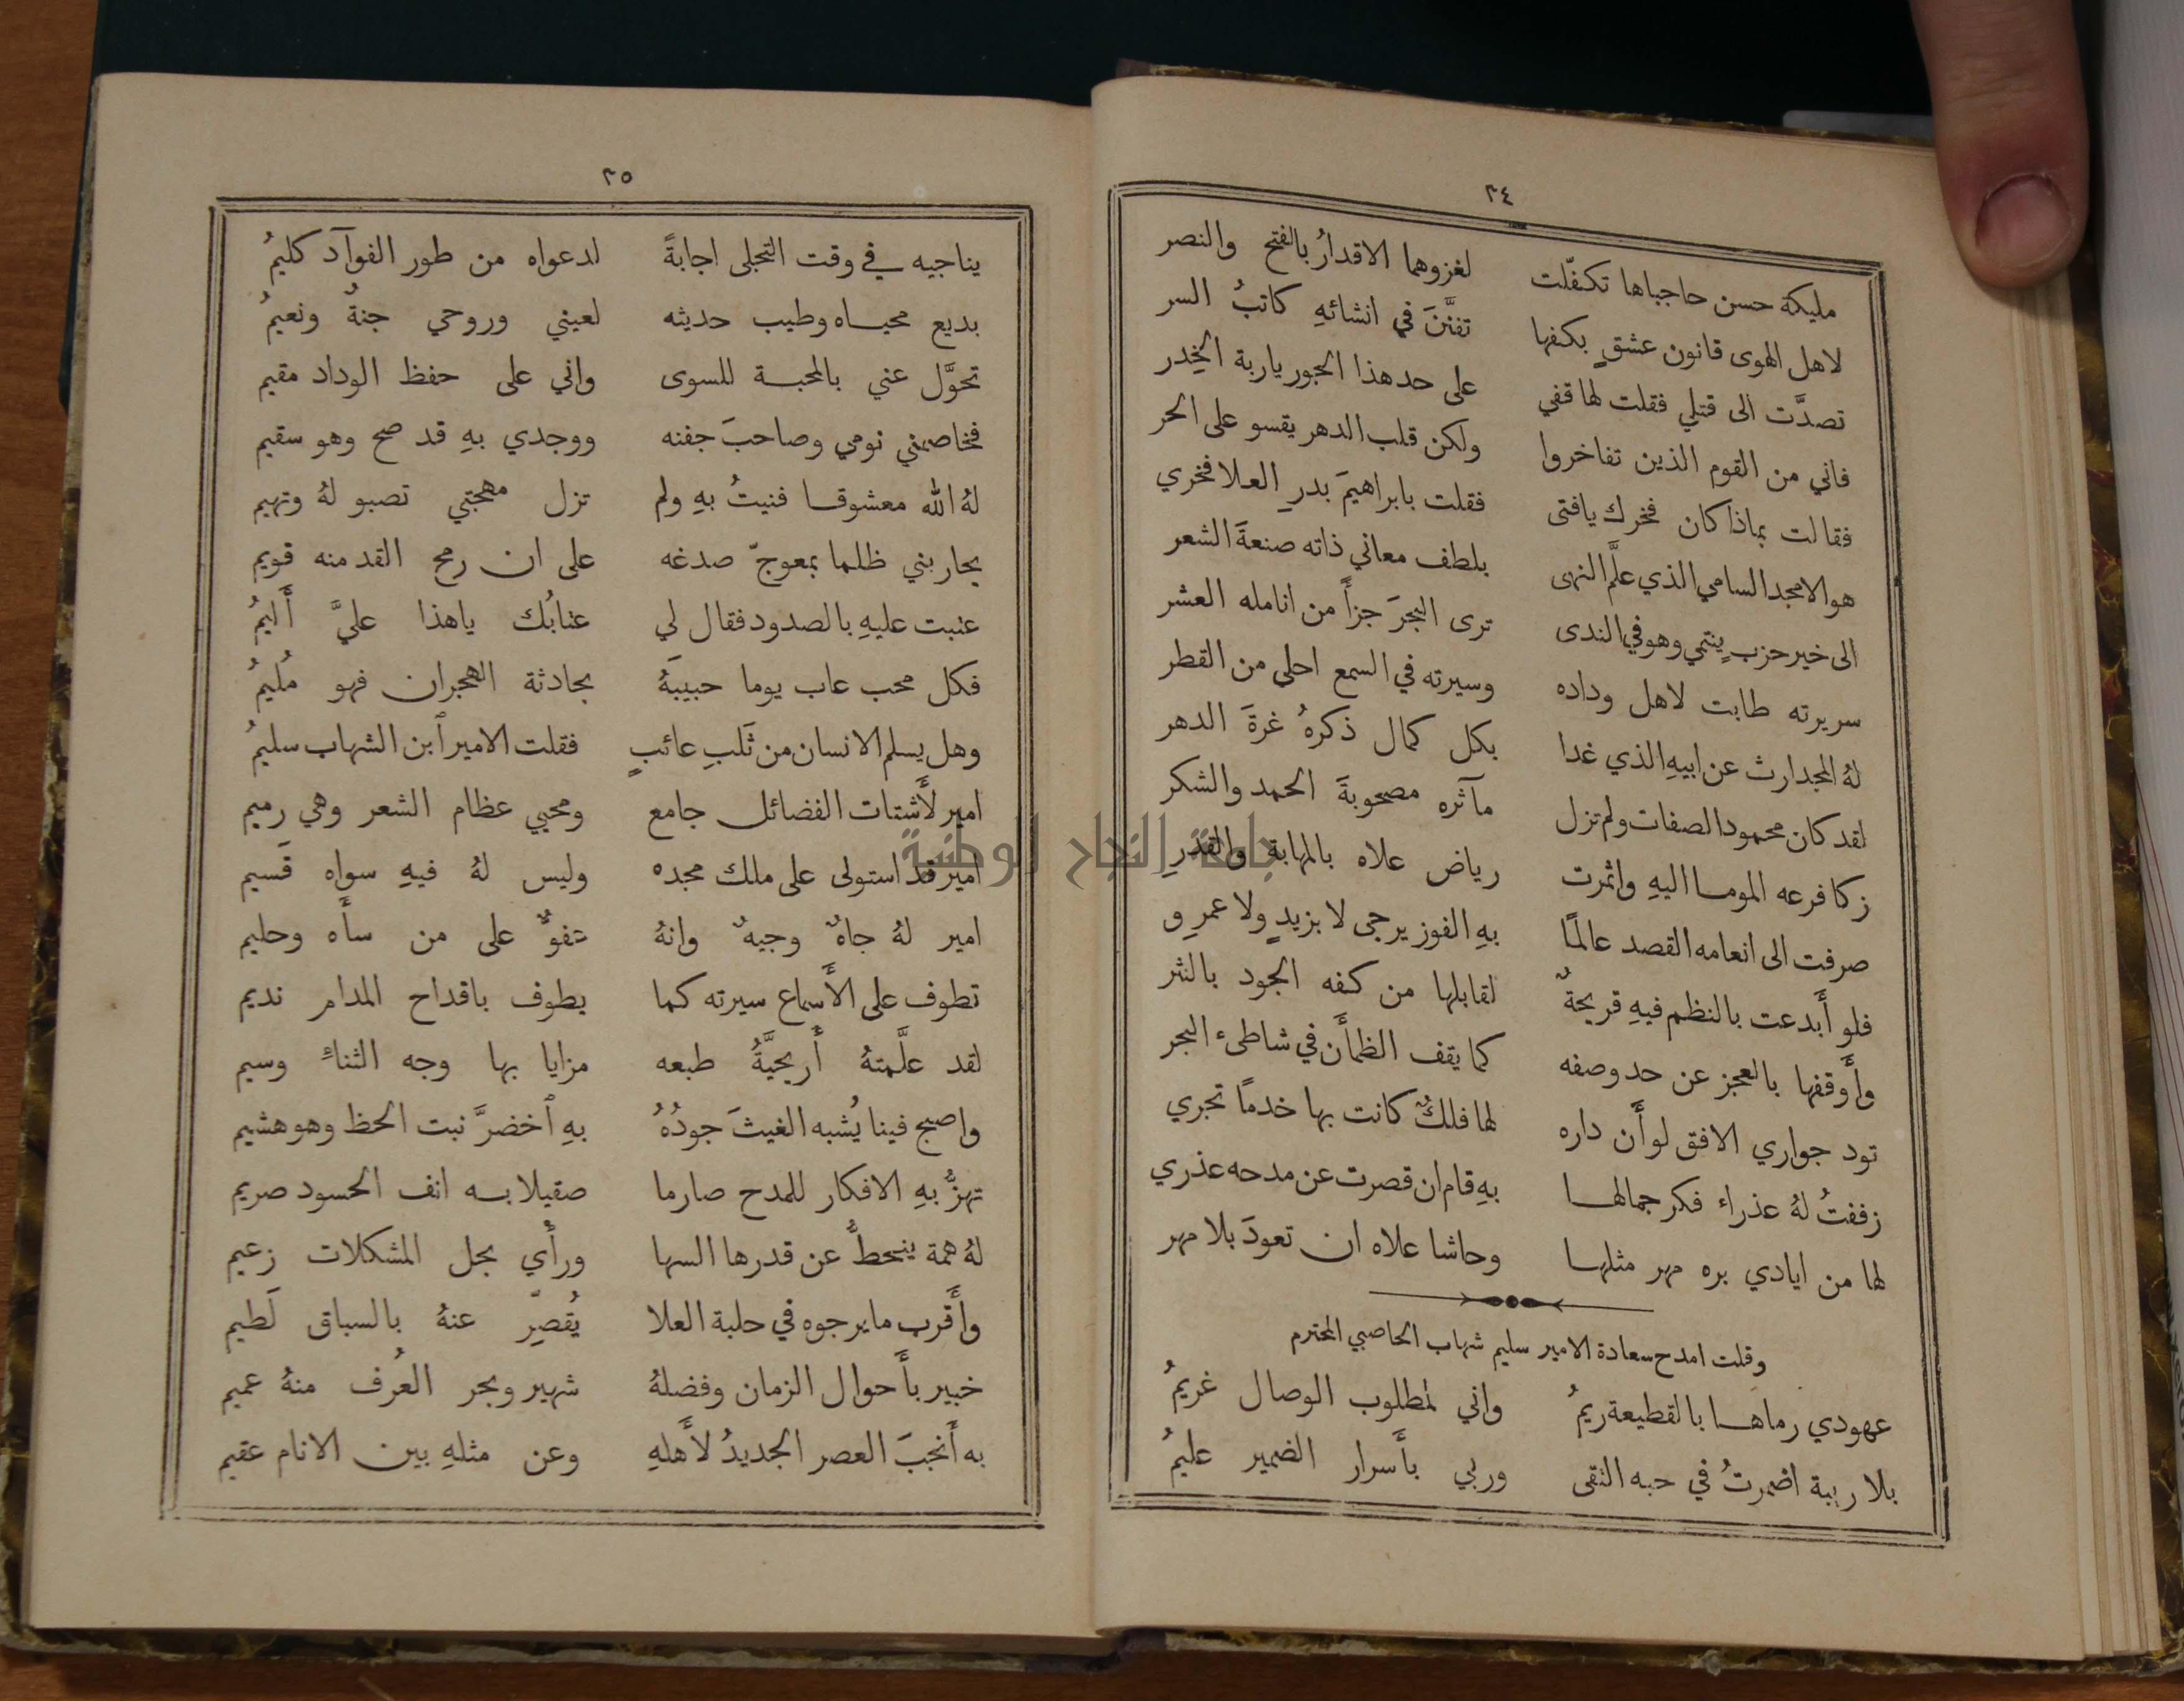 ٣٤
مليكة حسن حاجباها تكفّلت لغزوهما الاقدارُ بالفتح والنصر
لاهل الهوى قانون عشقٍ بكفها تفنَّنَ في انشائهِ كاتبُ السر
تصدَّت الى قتلي فقلت لها قفي على حد هذا الجور ياربة الخِدر
فاني من القوم الذين تفاخروا ولكن قلب الدهر يقسو على الحر
فقالت بماذا كان فخرك يافتى فقلت بابراهيمَ بدرِ العلا فخري
هو الامجد السامي الذي علَّم النهى بلطف معاني ذاته صنعةَ الشعر
الى خير حزبٍ ينتمي وهو في الندى ترى البحرَ جزأً من انامله العشر
سريرته طابت لاهل وداده وسيرته في السمع احلى من القطر
لهُ المجد ارث عن ابيهِ الذي غدا بكل كمال ذكرهُ غرةَ الدهر
لقد كان محمود الصفات ولم تزل مآثره مصحوبةَ الحمد والشكر
زكا فرعه الموما اليهِ واثمرت رياض علاه بالمهابة والقدرِ
صرفت الى انعامه القصد عالمًا بهِ الفوز يرجى لا بزيدٍ ولا عمرِو
فلو أَبدعت بالنظم فيهِ قريحةٌ لقابلها من كفه الجود بالنثر
وأَوقفها بالعجز عن حد وصفه كما يقف الظمأَن في شاطىء البحر
تود جواري الافق لو أَن داره لها فلكٌ كانت بها خدمًا تجري
زففتُ لهُ عذراء فكر جمالها بهِ قام ان قصرت عن مدحه عذري
لها من ايادي بره مهر مثلها وحاشا علاه ان تعودَ بلا مهر
وقلت امدح سعادة الامير سليم شهاب الحاصبي المحترم
عهودي رماها بالقطيعة ريمُ واني لمطلوب الوصال غريمُ
بلا ريبة اضمرتُ في حبه التقى وربي بأَسرار الضمير عليمُ
٣٥
يناجيه في وقت التجلى اجابةً لدعواه من طور الفوآد كليمُ
بديع محياه وطيب حديثه لعيني وروحي جنةٌ ونعيمُ
تحوَّل عني بالمحبة للسوى واني على حفظ الوداد مقيم
فخاصمني نومي وصاحبَ جفنه ووجدي بهِ قد صح وهو سقيم
لهُ الله معشوقا فنيتُ بهِ ولم تزل مهجتي تصبو لهُ وتهيم
يحاربني ظلما بمعوجّ صدغه على ان رمح القد منه قويم
عتبت عليهِ بالصدود فقال لي عتابُك ياهذا عليَّ أَليمُ
فكل محب عاب يوما حبيبَهُ بحادثة الهجران فهو مُليمُ
وهل يسلم الانسان من ثَلبِ عائبٍ فقلت الامير ٱبن الشهاب سليمُ
امير لأَشتات الفضائل جامع ومحيي عظام الشعر وهي رميم
امير قد استولى على ملك مجده وليس لهُ فيهِ سواه قَسيم
امير لهُ جاهٌ وجيهٌ وانهُ عفوٌّ على من سأَه وحليم
تطوف على الأَسماع سيرته كما يطوف باقداح المدام نديم
لقد علَّمتهُ أَريحيَّةُ طبعه مزايا بها وجه الثناءِ وسيم
واصبح فينا يُشبه الغيثَ جودُهُ بهِ ٱخضرَّ نبت الحظ وهو هشيم
تهزُّ بهِ الافكار للمدح صارما صقيلا به انف الحسود صريم
لهُ همة ينحطُّ عن قدرها السها ورأَي بحل المشكلات زعيم
وأَقرب ما يرجوه في حلبة العلا يُقصِّر عنهُ بالسباق لَطيم
خبير بأَحوال الزمان وفضلهُ شهير وبحر العُرف منهُ عميم
به أَنجبَ العصر الجديدُ لأَهلهِ وعن مثلهِ بين الانام عقيم
جامعة النجاح الوطنية